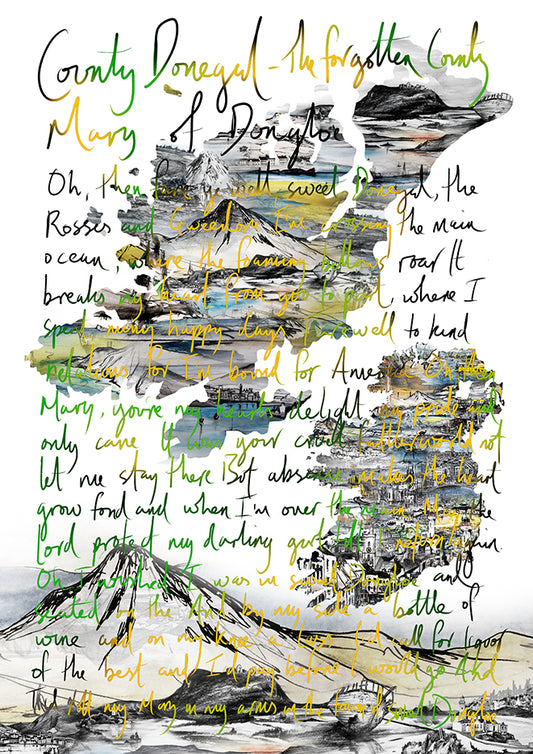 County Donegal - The forgotten County
Mary of Dongloe
Oh, then fare ye well, sweet Donegal, the
Rosses and Gweedore I'm crossing the main
ocean, where the foaming billows roar It
breaks my heart from you to part, where I
spent many happy days Farewell to kind
relations for I'm bound for America Oh then
Mary, you're my hearts delight my pride and
only care It was your cruel father would not
let me stay there But absence makes the heart
grow fond and when I'm over the main May the
Lord protect my darling girl till I return again
Oh I wished I was in sweet Dongloe and
seated on the And by my side a bottle of
wine and on my knee a Lass I'd call for liquor
of the best and I'd pay before I would go And
I'd roll my Mary in my arms in the town of sweet Dongloe